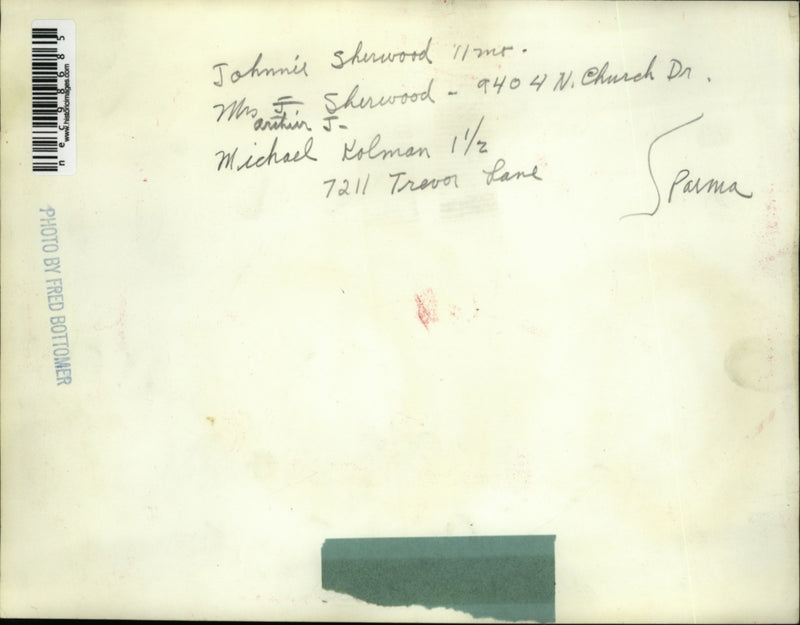 Johnnie Sherwood 11 mo.
Mrs J Sherwood - 9404 N. Church Dr.
Arthur J-
Michael Kolman 1 1/2
7211 Trevor Lane
Parma
PHOTO BY FRED BOTTOMER
www.historicimages.com
nec98685